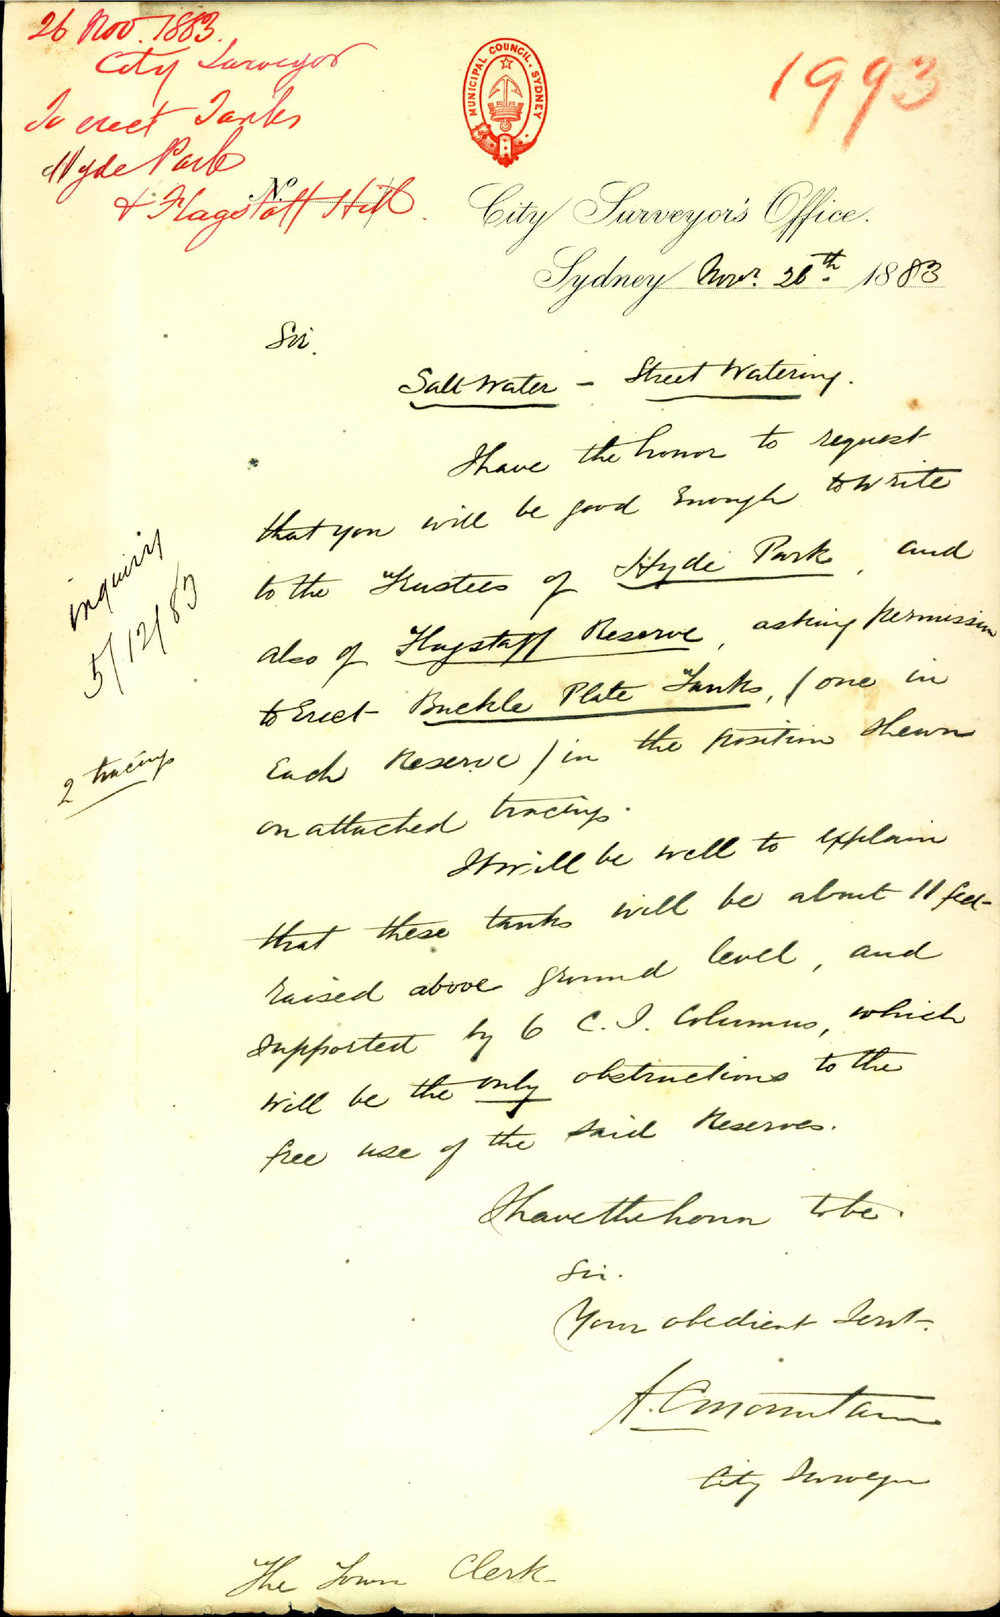 26 Nov. 1883.
City Surveyor
To erect Tanks
Hyde Park
& Flagstaff Hill.
MUNICIPAL COUNCIL, SYDNEY
1993
No.
City Surveyor's Office.
Sydney Novr. 26th 1883
Sir,
Salt Water – Street Watering.
I have the honor to request
that you will be good enough to write
to the Trustees of Hyde Park, and
also of Flagstaff Reserve, asking permission
to Erect Buckle Plate Tanks, (one in
Each Reserve) in the position shewn
on attached tracings.
It will be well to explain
that these tanks will be about 11 feet
raised above ground level, and
supported by 6 C. I. Columns, which
will be the only obstructions to the
free use of the said Reserves.
I have the honor to be.
Sir.
Your obedient Servt.
A. C. Mountain
City Surveyor
The Town Clerk
inquiry
5/12/83
2 tracings